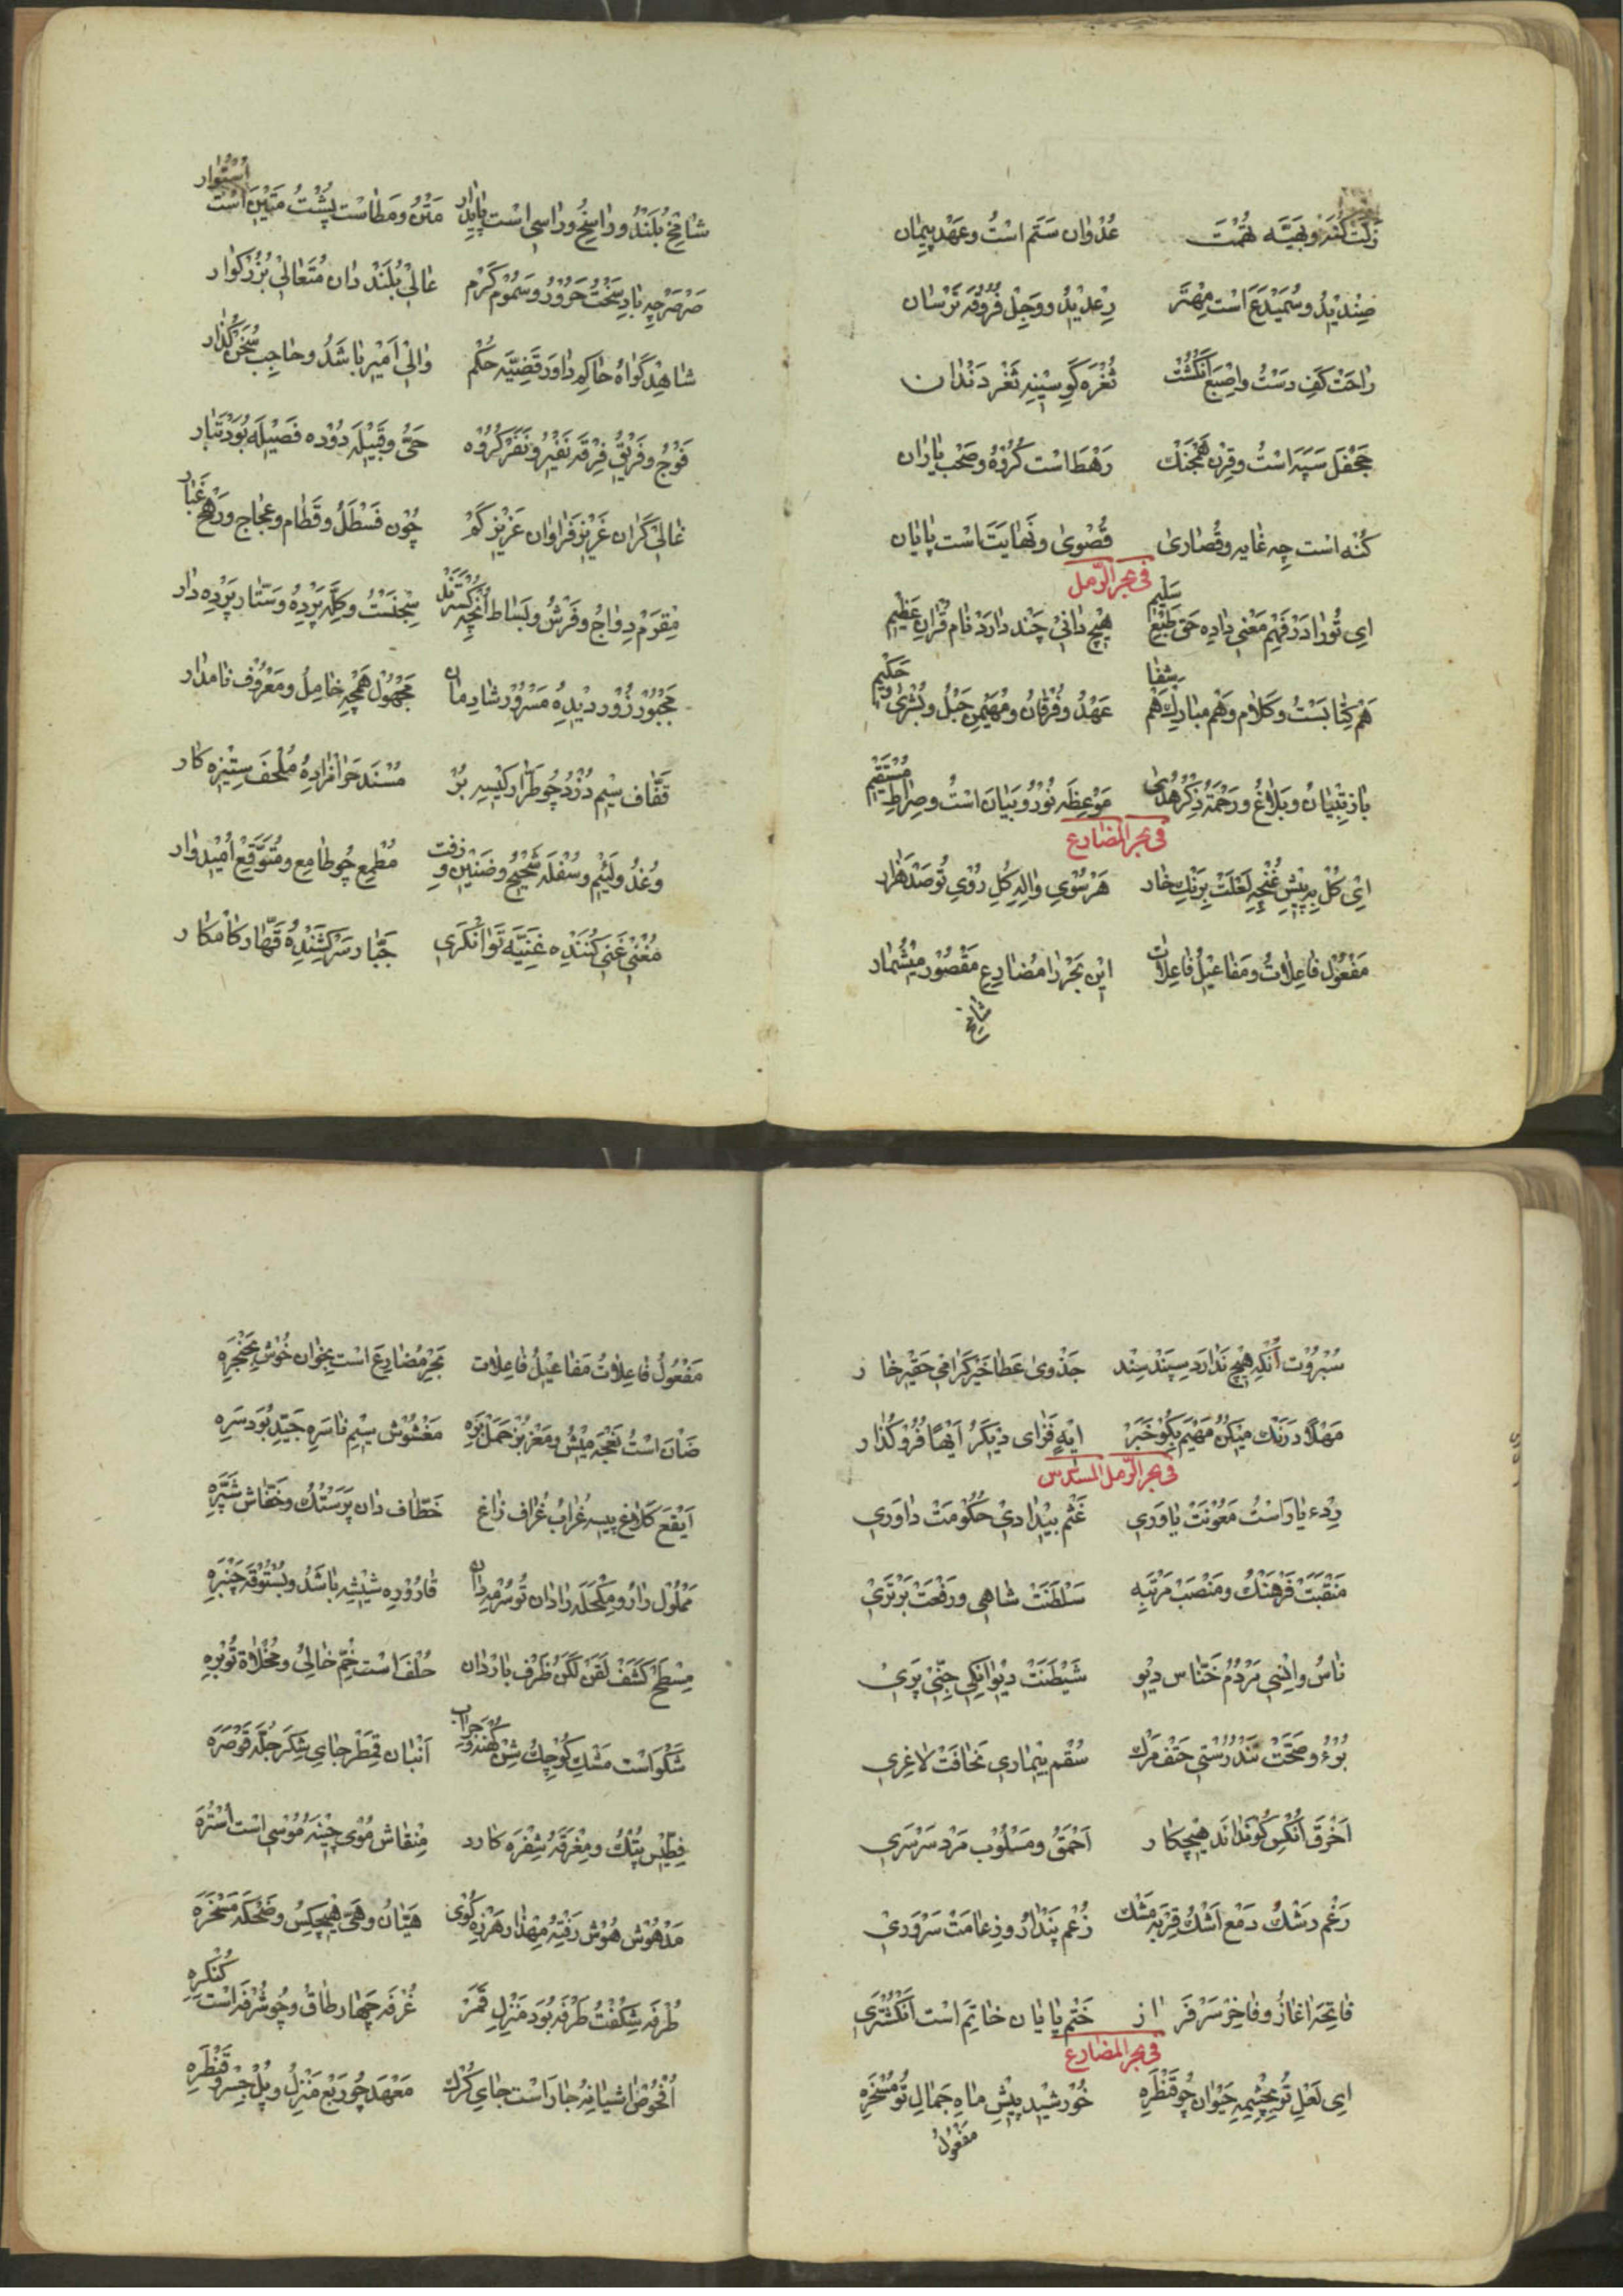 زلت گنه و بهیته تهمت عدوان ستم است و عهد پیمان
صندید و سمیدع است مهتر رعدید و وجل فروقه ترسان
راحت کف دست و اصبع انگشت ثغره گو سینه ثغر دندان
جحفل سپه است و قرن همجنک رهط است گروه و صحب یاران
کنه است چه غایه و قصاری قصوی و نهایت است پایان
فی بحر الرمل
ای تو را در فهم معنی داده حق طبع سلیم هیچ دانی چند دارد نام قران عظیم
هم کتابست و کلام و هم مبارک هم شفا عهد و فرقان و مهیمن حبل و بشری و حکیم
باز تبیان و بلاغ و رحمة ذکر هدی موعظه نور و بیان است و صراط مستقیم
فی بحر المضارع
ای گل به پیش غنچه لعلت برنک خار هر سوی واله گل روی تو صد هزار
مفعول فاعلات و مفاعیل فاعلات این بحر را مضارع مقصور میشمار
شامخ
شامخ بلند و راسخ و راسی است پایدار متن و مطاست پشت متین است استوار
صرصر چه باد سخت حرور و سموم گرم عالی بلند دان متعالی بزرگوار
شاهد گواه حاکم داور قضیه حکم والی امیر باشد و حاجب سخن گذار
فوج و فریق فرقه نفیر و نفر گروه حی و قبیله دوده فصیله بود تبار
غالی گران غزیز فراوان عزیز کم چون قسطل و قطام و عجاج و رهج غبار
مقرم دواج و فرش و بساط انچه گسترند سجفست و کله پرده و ستار پرده دار
مجبور زور دیده مسرور شادمان مجهول همچه خامل و معروف نامدار
قفاف سیم دزد چو طرار کیسه بر مسند حرامزاده ملحف ستیزه کار
وغد و لئیم و سفله شحیح و ضنین و زفت مطمع چو طامع و متوقع امیدوار
مغنی غنی کننده غنیه توانگری جبار سرکشنده قهار کامکار
سبروت انکه هیچ ندارد سپند سپند جذوی عطا خیر گرامی حقیر خار
مهلا درنک میکن مهیم بگو خبر ایه فزای دیگر ایها فرو گذار
فی بحر الرمل المسدس
ردء یاراست معونت یاوری غشم بیدادی حکومت داوری
منقبت فرهنک و منصب مرتبه سلطنت شاهی و رفعت برتری
ناس و انسی مردم خناس دیو شیطنت دیوانگی جنی پری
بوء و صحت تندرستی حتف مرک سقم بیماری نحافت لاغری
اخرق انکس کو نداند هیچکار احمق و مسلوب مرد سرسری
رغم رشک دمع اشک قربه مشک زعم پندار و زعامت سروری
فاتحه اغاز و فاخر سرفراز ختم پایان خاتم است انگشتری
فی بحر المضارع
ای لعل تو بچشمه حیوان چو قنطره خورشید پیش ماه جمال تو مسخره
مفعول
مفعول فاعلات مفاعیل فاعلات بحر مضارع است بخوان خوش بحنجره
ضان است نعجه میش و معز بز حمل بره مغشوش سیم ناسره جید بود سره
ابقع کلاغ پیسه غراب غراف زاغ خطاف دان پرستک و خفاش شپره
مملول دارو و مکحله را دان تو سرمه دان قاروره شیشه باشد و بستوقه چنبره
مسطح کشف لقن لکن ظرف باردان حلفاست خم خالی و مخلاة توبره
شکواست مشک کوچک شن کهنه و جراب انبان قمطر جای شکر جله قوصره
فطیس پتک و مغرقه شفره کارد منقاش موی چینه موسی است استره
مدهوش هوش رفته مهذار هرزه گوی هیان و هی هیچکس و ضحکه مسخره
طرفه شگفت طرفه بود منزل قمر غرفه چهار طاق و چو شرفه است کنگره
افحوص اشیانه جار است جای کرک معهد چو ربع منزل و پل جسر و قنطره